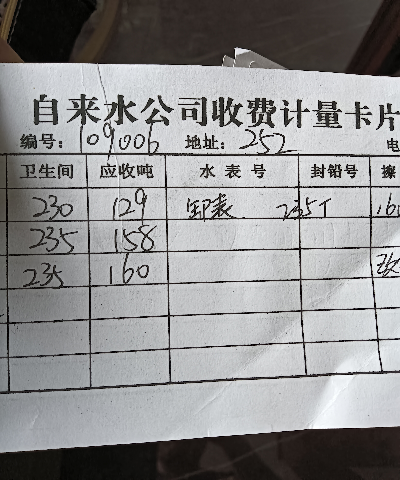 自来水公司收费计量卡片
编号: 109006 地址: 252 电
卫生间 应收吨 水表号 封铅号 擦
230 129 卸表 235T 160
235 158
235 160